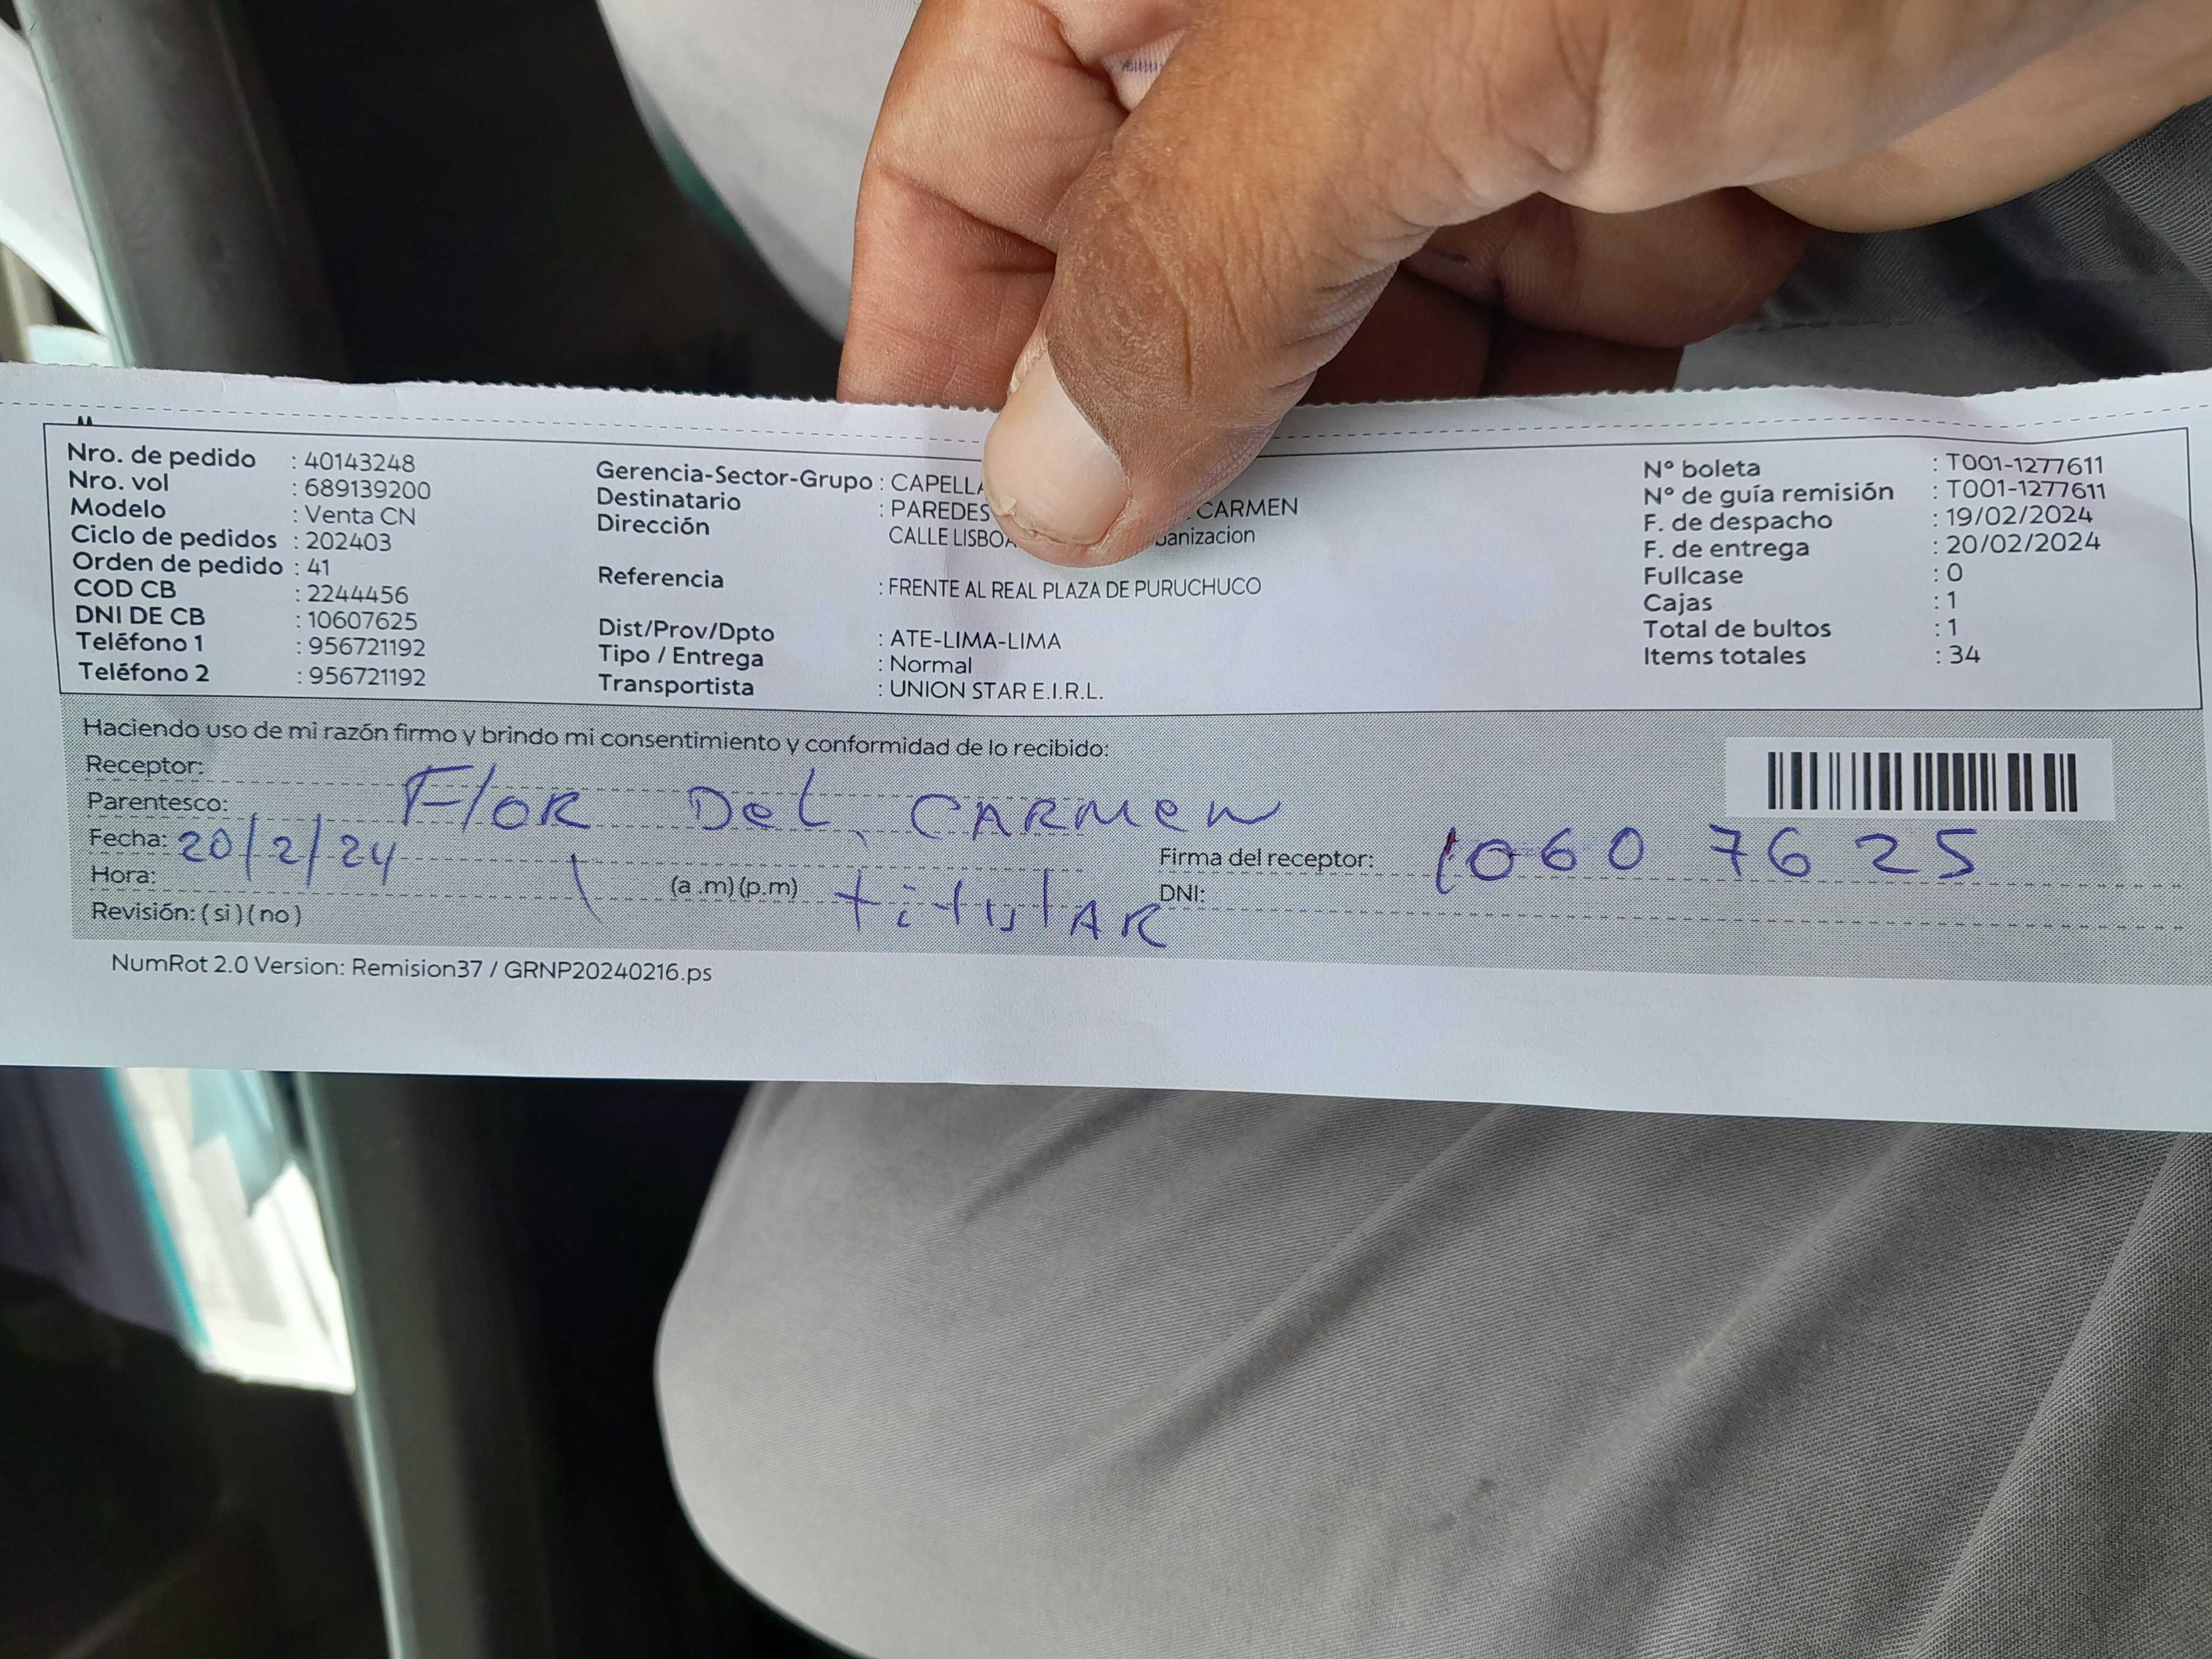 Nro. de pedido : 40143248
Nro. vol : 689139200
Modelo : Venta CN
Ciclo de pedidos : 202403
Orden de pedido : 41
COD CB : 2244456
DNI DE CB : 10607625
Teléfono 1 : 956721192
Teléfono 2 : 956721192
Gerencia-Sector-Grupo :
Destinatario : PAREDES CARMEN
Dirección CALLE
Referencia : FRENTE AL REAL PLAZA DE PURUCHUCO
Dist/Prov/Dpto : ATE-LIMA-LIMA
Tipo / Entrega : Normal
Transportista : UNION STAR E.I.R.L.
N° boleta : T001-1277611
N° de guía remisión : T001-1277611
F. de despacho : 19/02/2024
F. de entrega : 20/02/2024
Fullcase : 0
Cajas : 1
Total de bultos : 1
Items totales : 34
Haciendo uso de mi razón firmo y brindo mi consentimiento y conformidad de lo recibido:
Receptor:
Parentesco: FlOR Del CARMEN
Fecha: 20/2/24
Firma del receptor: 10607625
Hora: (a .m)(p.m) titulAR
DNI:
Revisión: (si)(no)
NumRot 2.0 Version: Remision37 / GRNP20240216.ps